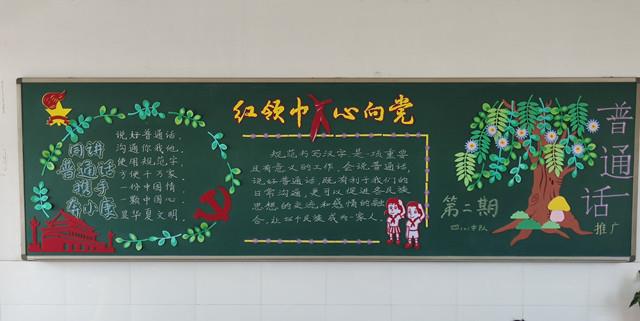 同讲
普通话
携手
奔小康
说好普通话，
沟通你我他。
使用规范字，
方便千万家。
一份中国情，
一颗中国心。
显华夏文明。
红领巾心向党
规范书写汉字，是一项重要
且有意义的工作。会说普通话，
说好普通话，既有利于我们的
日常沟通，更可以促进各民族
思想的交流和感情的融
合，让56个民族成为一家人。
第二期
中队
普通话
推广